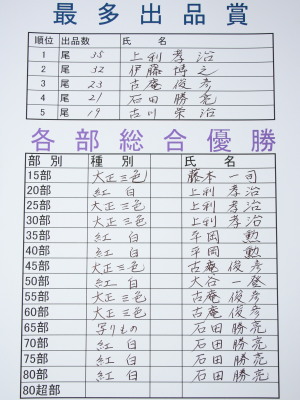 最多出品賞
順位 出品数 氏 名
1 尾 35 上利孝治
2 尾 32 伊藤博之
3 尾 23 古庵俊彦
4 尾 21 石田勝亮
5 尾 19 古川栄治
各部総合優勝
部別 種別 氏名
15部 大正三色 藤本一司
20部 紅白 上利孝治
25部 大正三色 上利孝治
30部 大正三色 上利孝治
35部 紅白 平岡勲
40部 紅白 平岡勲
45部 大正三色 古庵俊彦
50部 紅白 大谷一登
55部 大正三色 古庵俊彦
60部 大正三色 古庵俊彦
65部 写りもの 石田勝亮
70部 紅白 石田勝亮
75部 紅白 石田勝亮
80部 紅白 石田勝亮
80超部